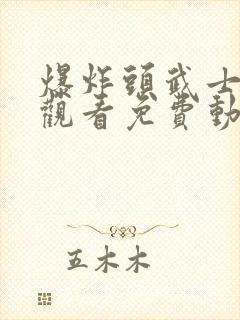 爆炸頭武士
觀看免費動
五木木